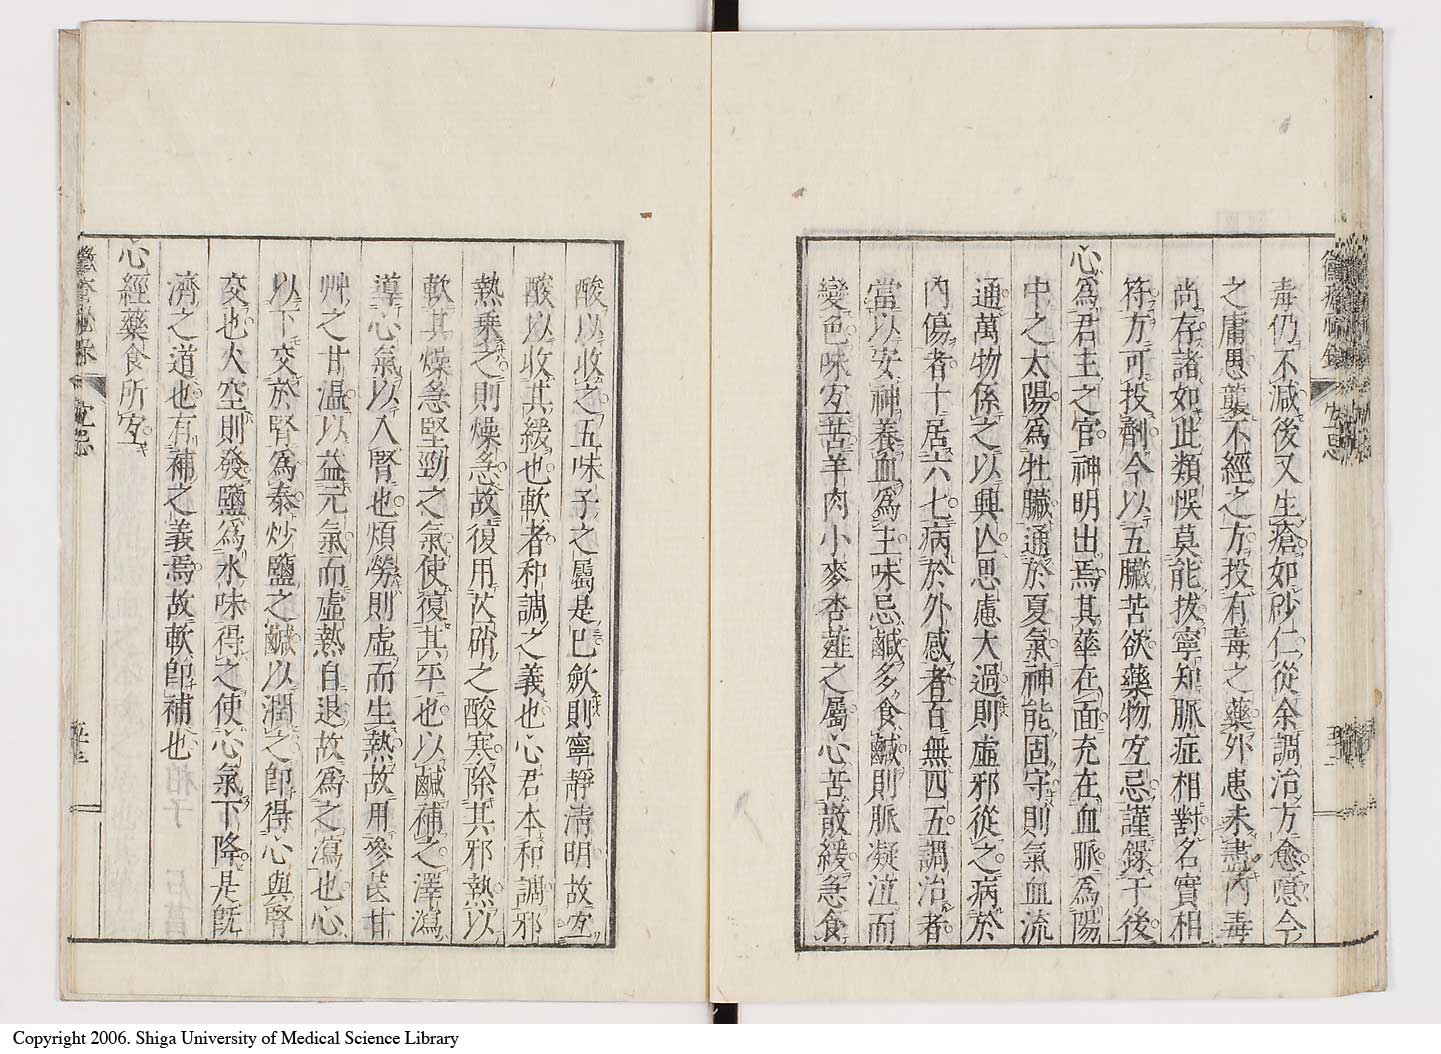 毒仍不減後又生瘡如砂仁從余調治方愈噫今
之庸愚襲不經之方投有毒之藥外患未盡內毒
尚存諸如此類悮莫能拔寧知脈症相對名實相
符方可投劑今以五臟苦欲藥物宐忌謹錄于後
心為君主之官神明出焉其華在面充在血脈為陽
中之太陽為牡臟通於夏氣神能固守則氣血流
通萬物係之以興亾思慮大過則虛邪從之病於
內傷者十居六七病於外感者百無四五調治者
當以安神養血為主味忌鹹多食鹹則脈凝泣而
變色味宐苦羊肉小麥杏薤之屬心苦散緩急食
酸以收之五味子之屬是巳斂則寧靜清明故宐
酸以收其緩也軟者和調之義也心君本和調邪
熱乗之則燥急故復用芒硝之酸寒除其邪熱以
軟其燥急堅勁之氣使復其平也以鹹補之澤瀉
導心氣以入腎也煩勞則虛而生熱故用參芪甘
艸之甘温以益元氣而虛熱自退故為之瀉也心
以下交於腎為泰炒鹽之鹹以潤之即得心與腎
交也火空則發鹽為水味得之使心氣下降是旣
濟之道也有補之義焉故軟即補也
心經藥食所宐
宐忌